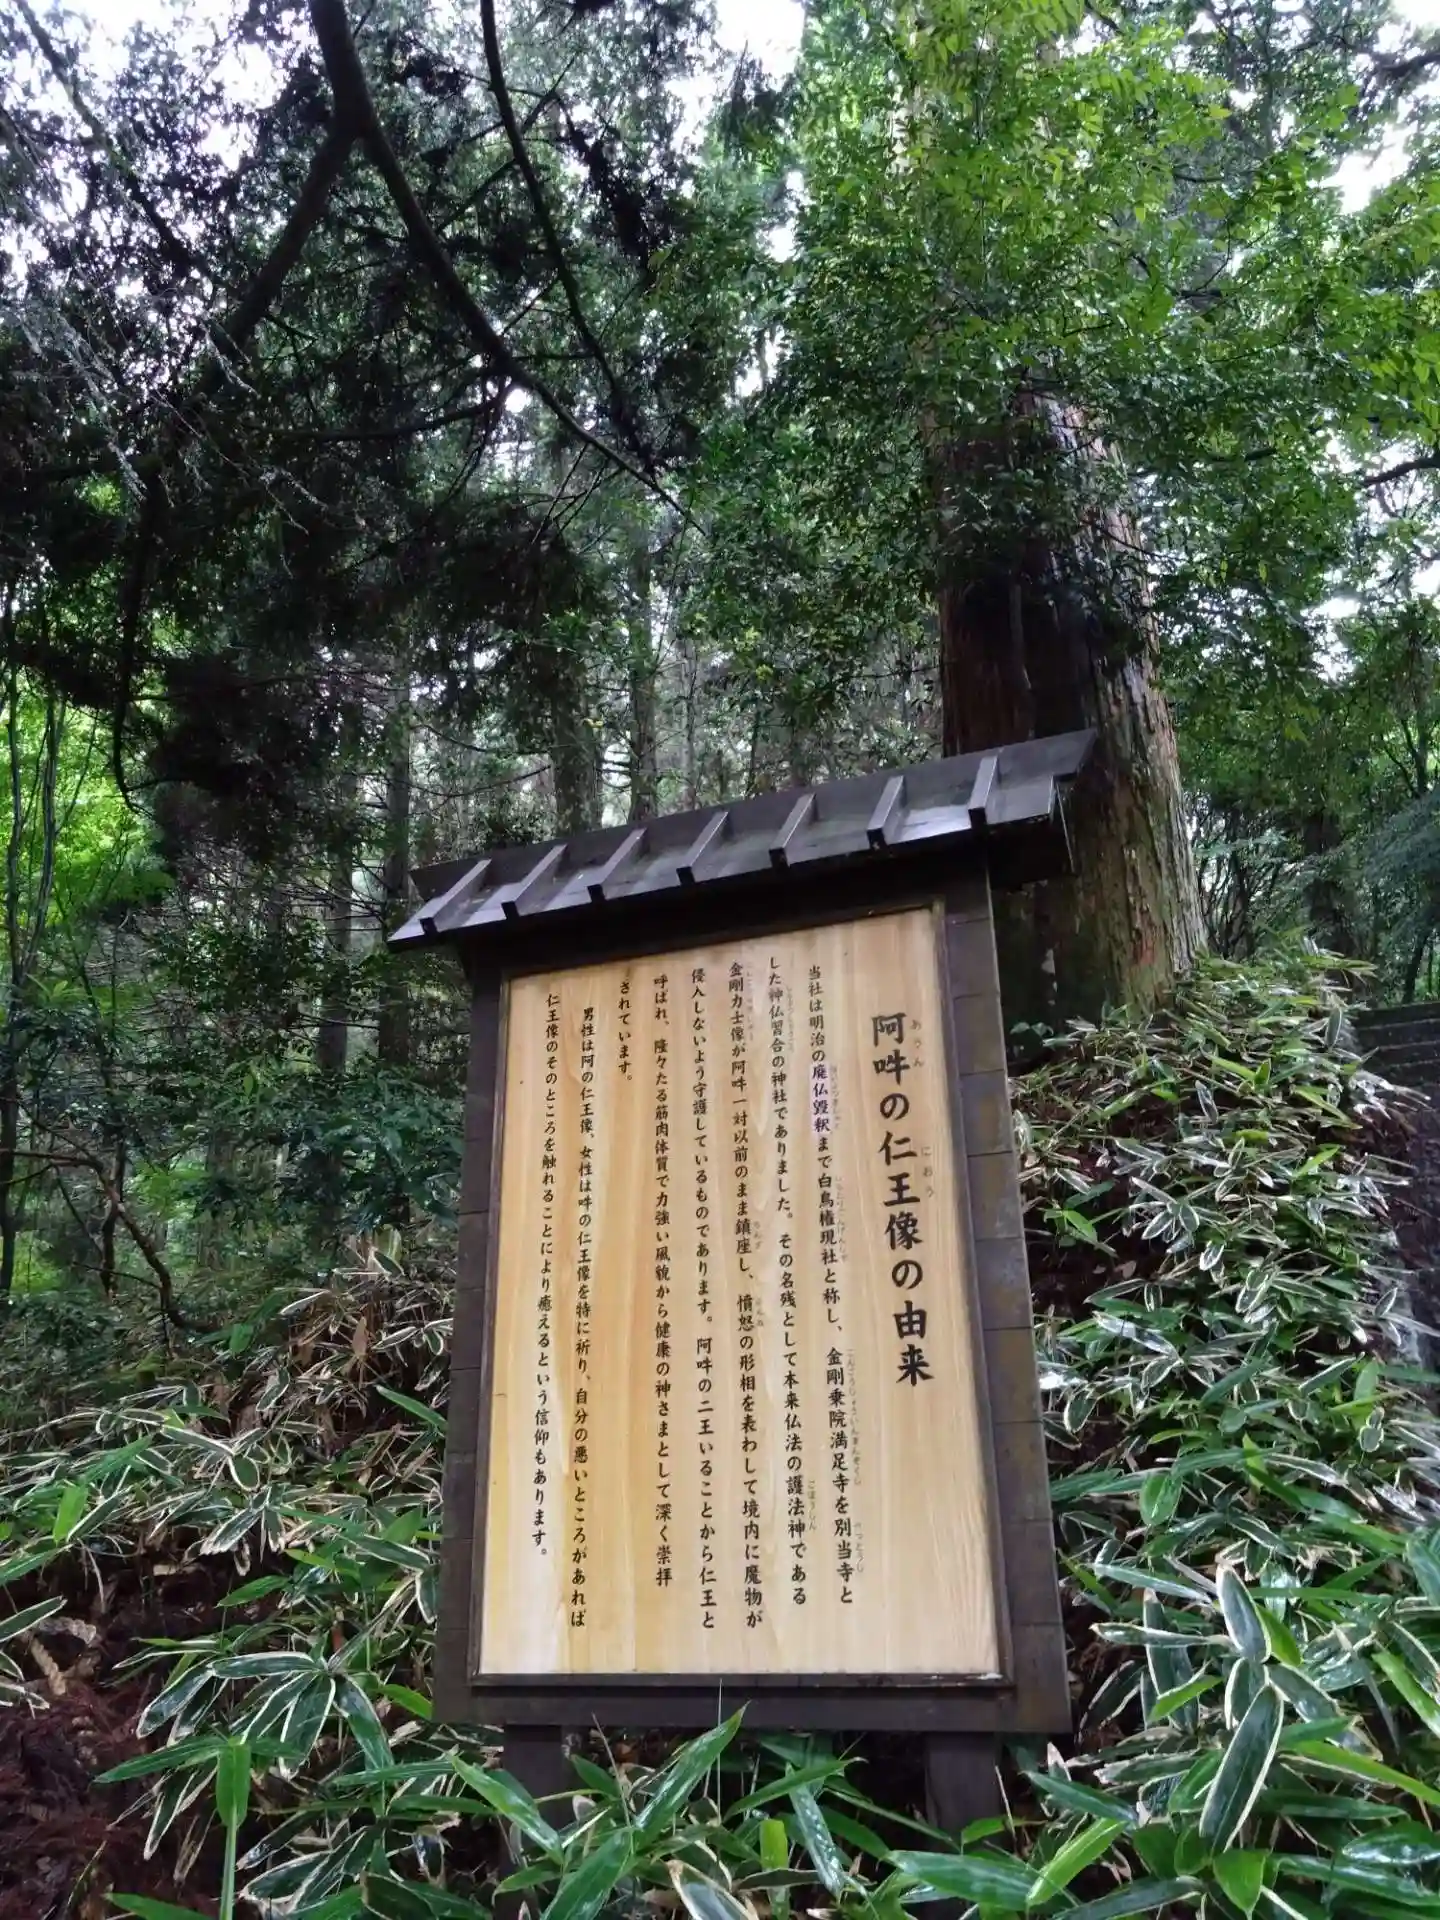 阿吽の仁王像の由来
当社は明治の廃仏毀釈まで白鳥権現社と称し、金剛乗院満足寺を別当寺と
した神仏習合の神社でありました。その名残として本来仏法の護法神である
金剛力士像が阿吽一対以前のまま鎮座し、憤怒の形相を表わして境内に魔物が
侵入しないよう守護しているものであります。阿吽の二王いることから仁王と
呼ばれ、隆々たる筋肉体質で力強い風貌から健康の神さまとして深く崇拝
されています。
男性は阿の仁王像、女性は吽の仁王像を特に祈り、自分の悪いところがあれば
仁王像のそのところを触れることにより癒えるという信仰もあります。